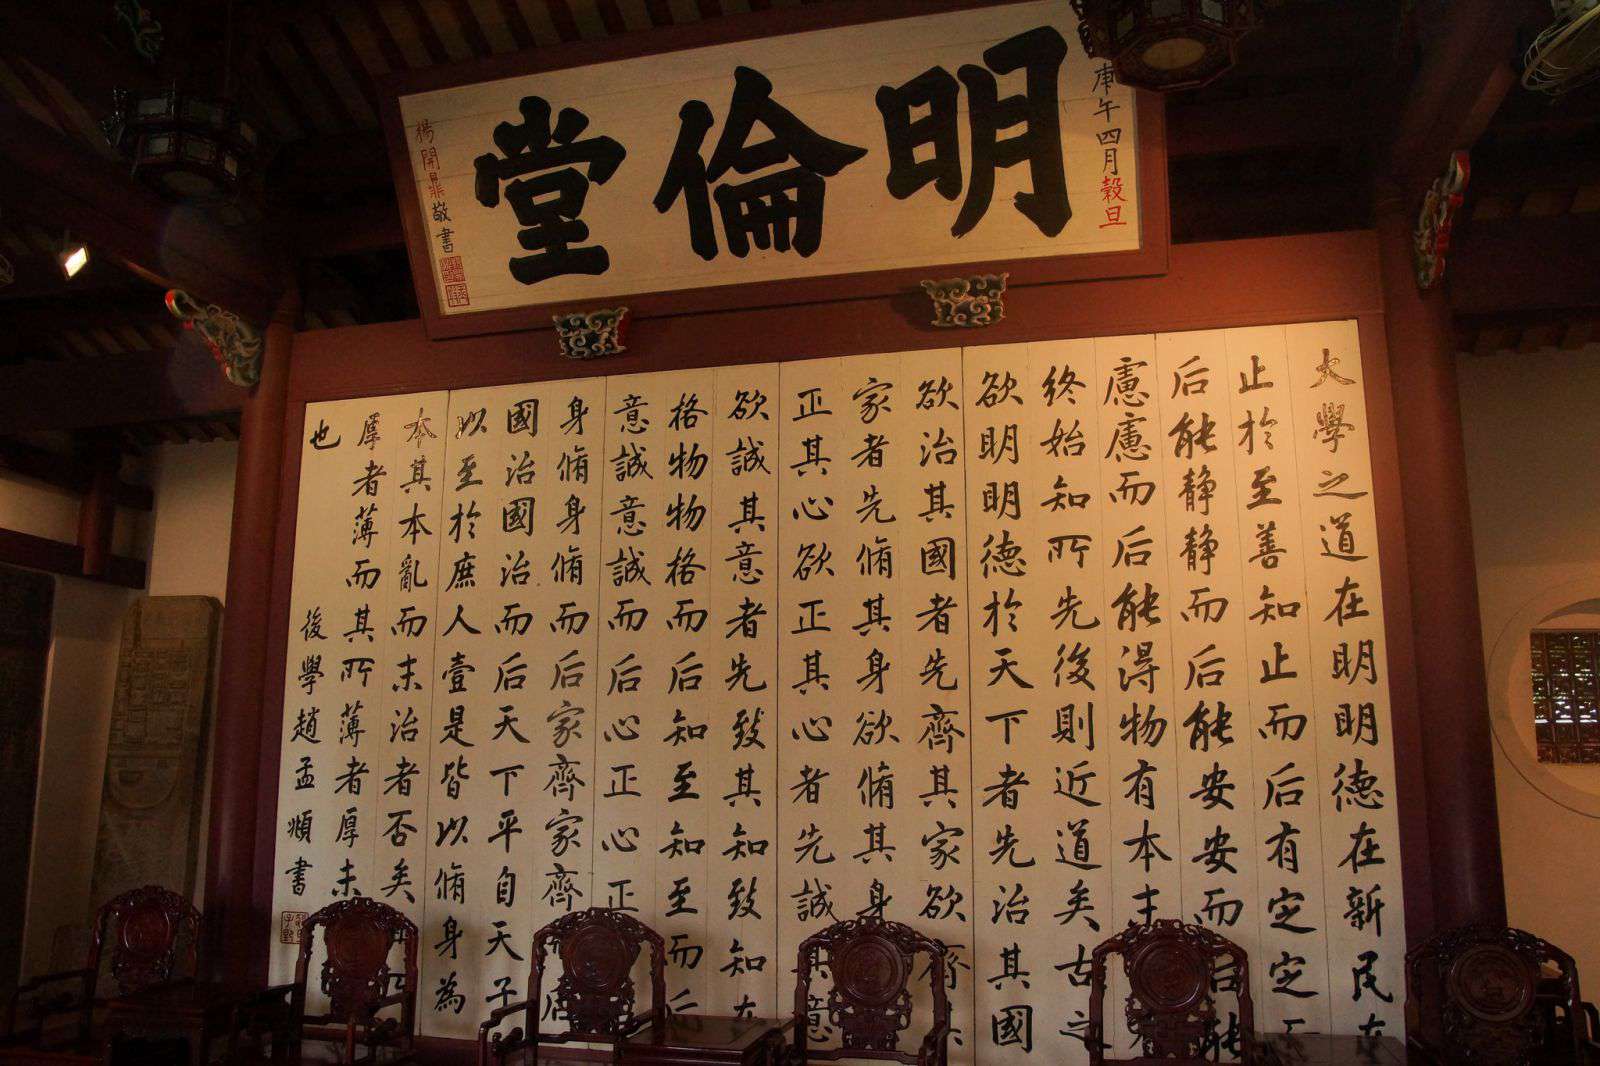 庚午四月穀旦
明倫堂
楊開鼎敬書
大學之道在明明德在新民在
止於至善知止而后有定定而
后能靜靜而后能安安而后能
慮慮而后能得物有本末
終始知所先後則近道矣古之
欲明明德於天下者先治其國
欲治其國者先齊其家欲齊其
家者先脩其身欲脩其身
正其心欲正其心者先誠其意
欲誠其意者先致其知致知在
格物物格而后知至知至而后
意誠意誠而后心正心正
身脩身脩而后家齊家齊后
國治國治而后天下平自天子
以至於庶人壹是皆以脩身為
本其本亂而末治者否矣其所
厚者薄而其所薄者厚未
也
後學趙孟頫書